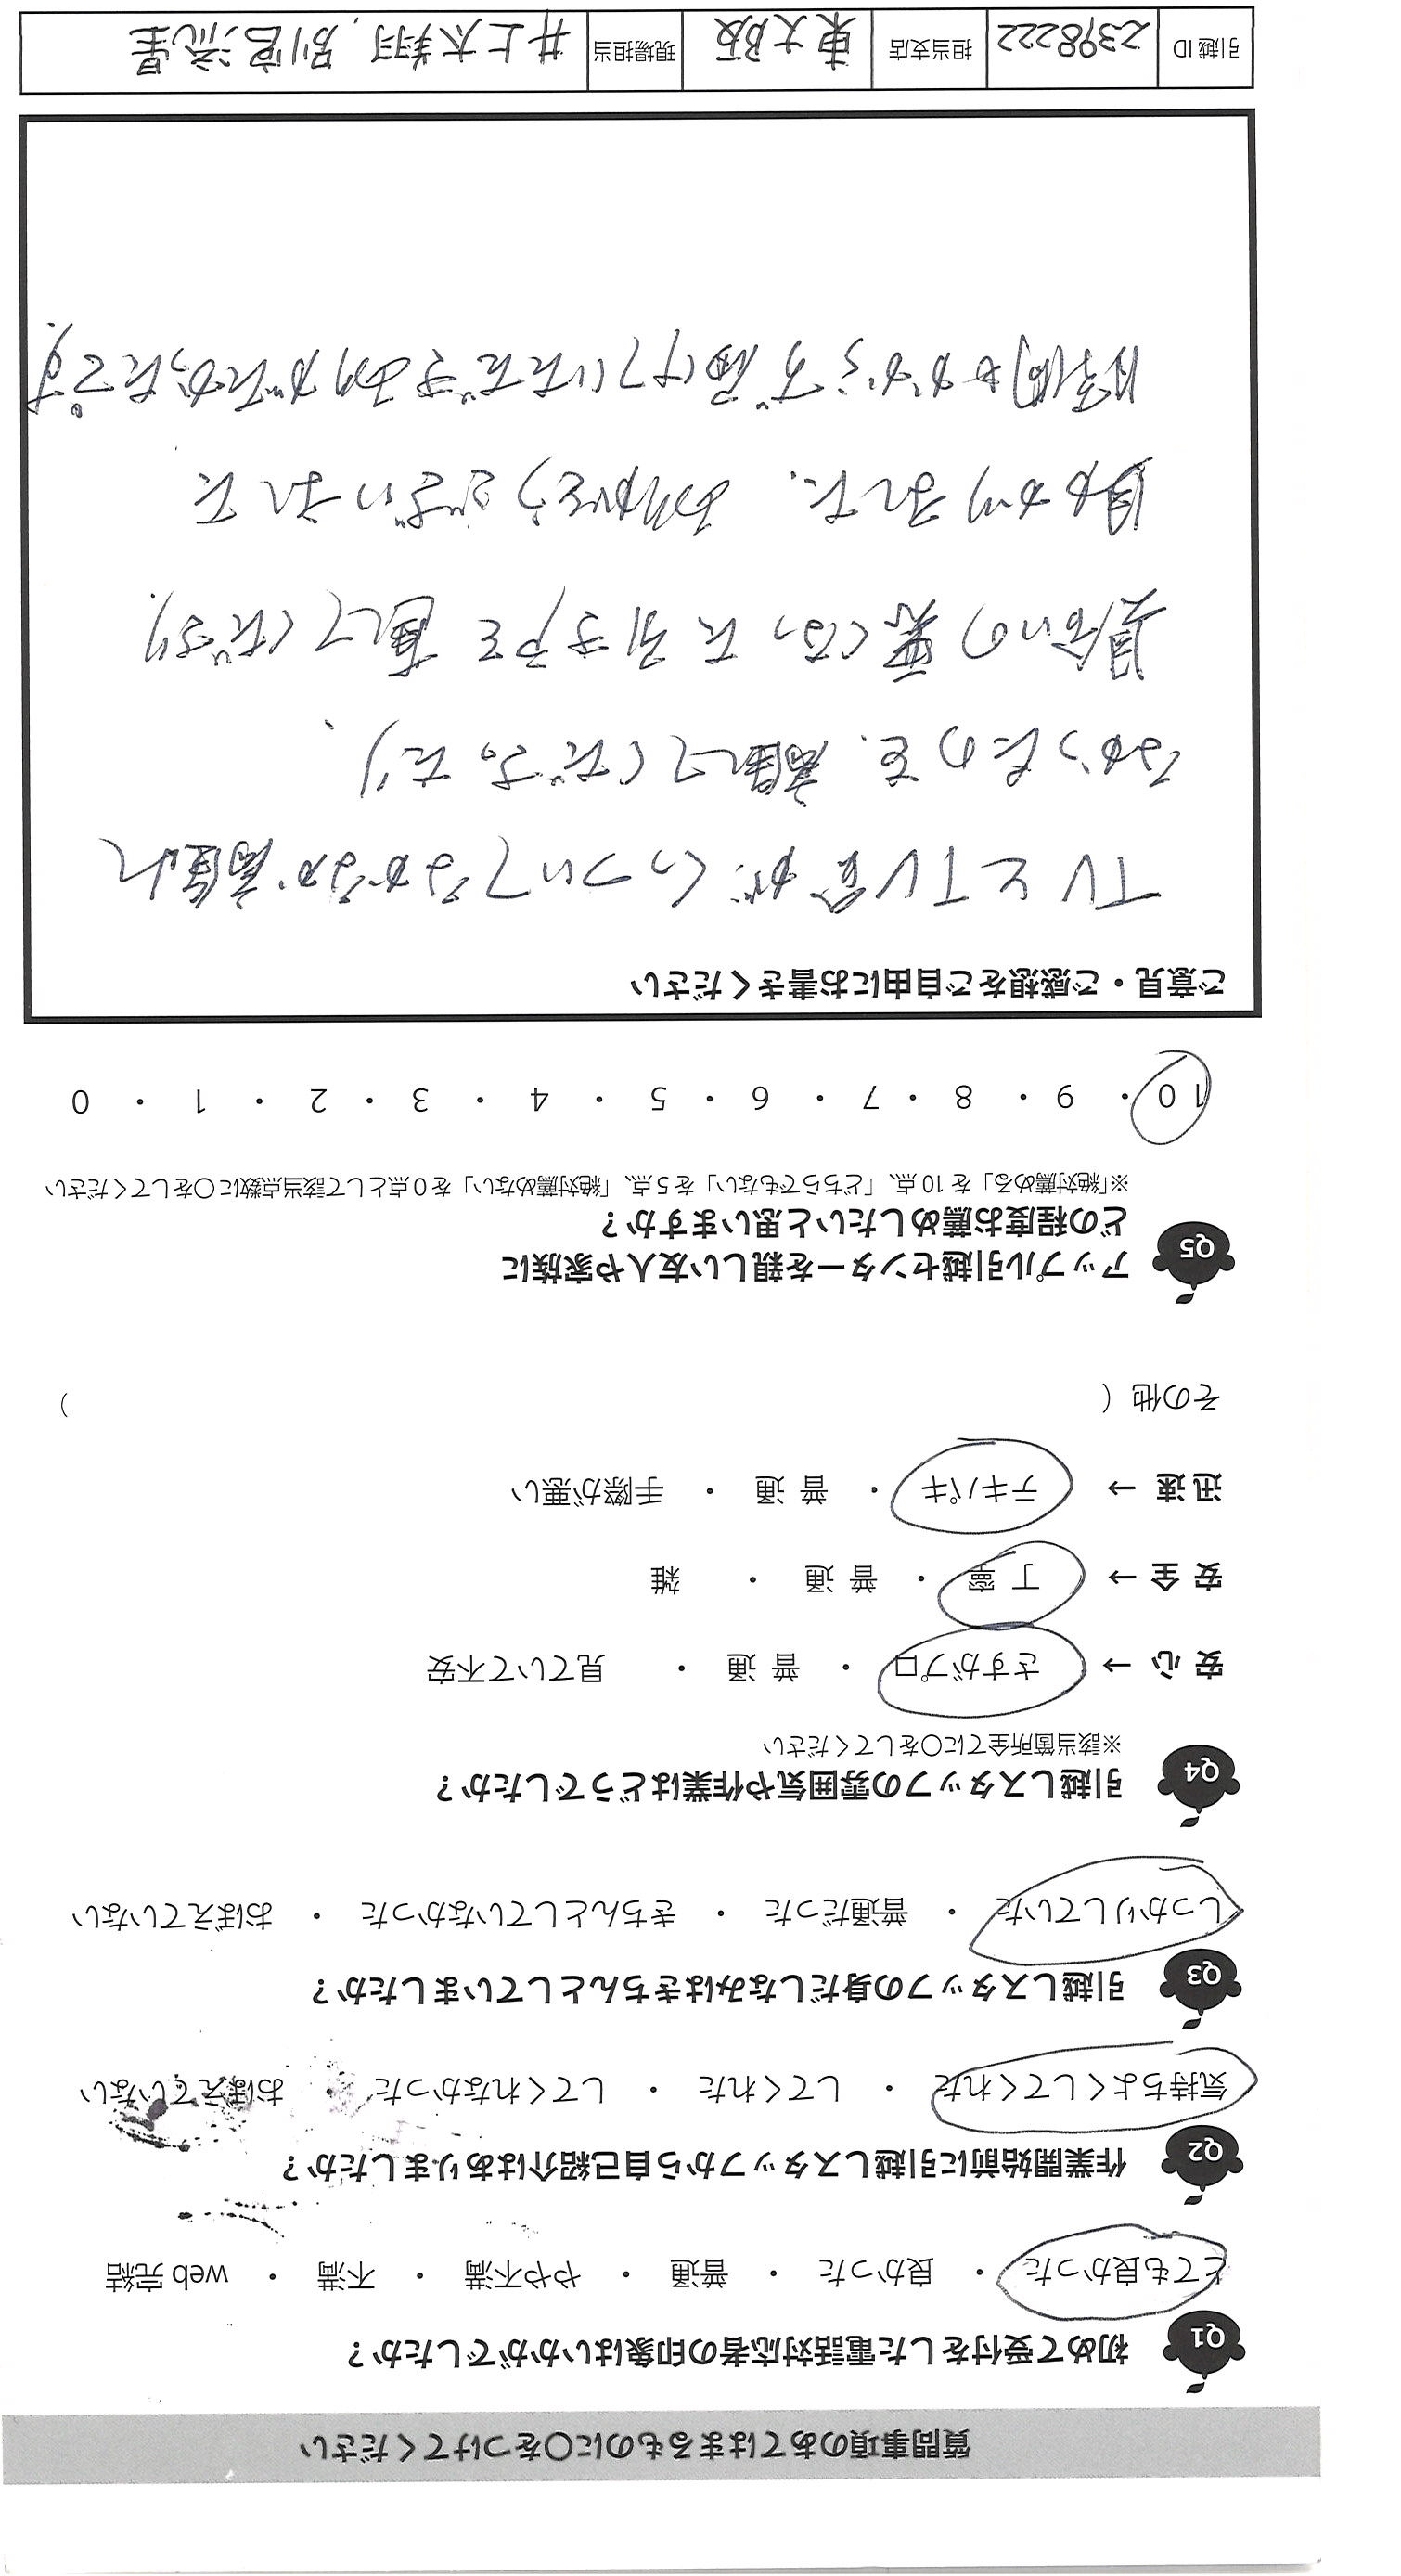 質問事項のあてはまるものに〇をつけてください
Q1 初めて受付をした電話対応者の印象はいかがでしたか？
とても良かった ・ 良かった ・ 普通 ・ やや不満 ・ 不満 ・ web 完結
Q2 作業開始前に引越しスタッフから自己紹介はありましたか？
気持ちよくしてくれた ・ してくれた ・ してくれなかった ・ おぼえていない
Q3 引越しスタッフの身だしなみはきちんとしていましたか？
しっかりしていた ・ 普通だった ・ きちんとしていなかった ・ おぼえていない
Q4 引越しスタッフの雰囲気や作業はどうでしたか？
※該当箇所全てに〇をしてください
安 心 → さすがプロ ・ 普 通 ・ 見ていて不安
安 全 → 丁 寧 ・ 普 通 ・ 雑
迅 速 → テキパキ ・ 普 通 ・ 手際が悪い
その他（ ）
Q5 アップル引越センターを親しい友人や家族に
どの程度お薦めしたいと思いますか？
※「絶対薦める」を 10 点、「どちらでもない」を 5 点、「絶対薦めない」を 0 点として該当点数に〇をしてください
10 ・ 9 ・ 8 ・ 7 ・ 6 ・ 5 ・ 4 ・ 3 ・ 2 ・ 1 ・ 0
ご意見・ご感想をご自由にお書きください
TVとTV台がくっついてなかなか離れ
なかったのを、離してくださったり、
具合の悪くなった引き戸を直してくださり
助かりました。ありがとうございました
時間もかからず届けていただきありがたかったです。
引越 ID 2398222 担当支店 東大阪 現場担当 井上太翔, 別宮流星